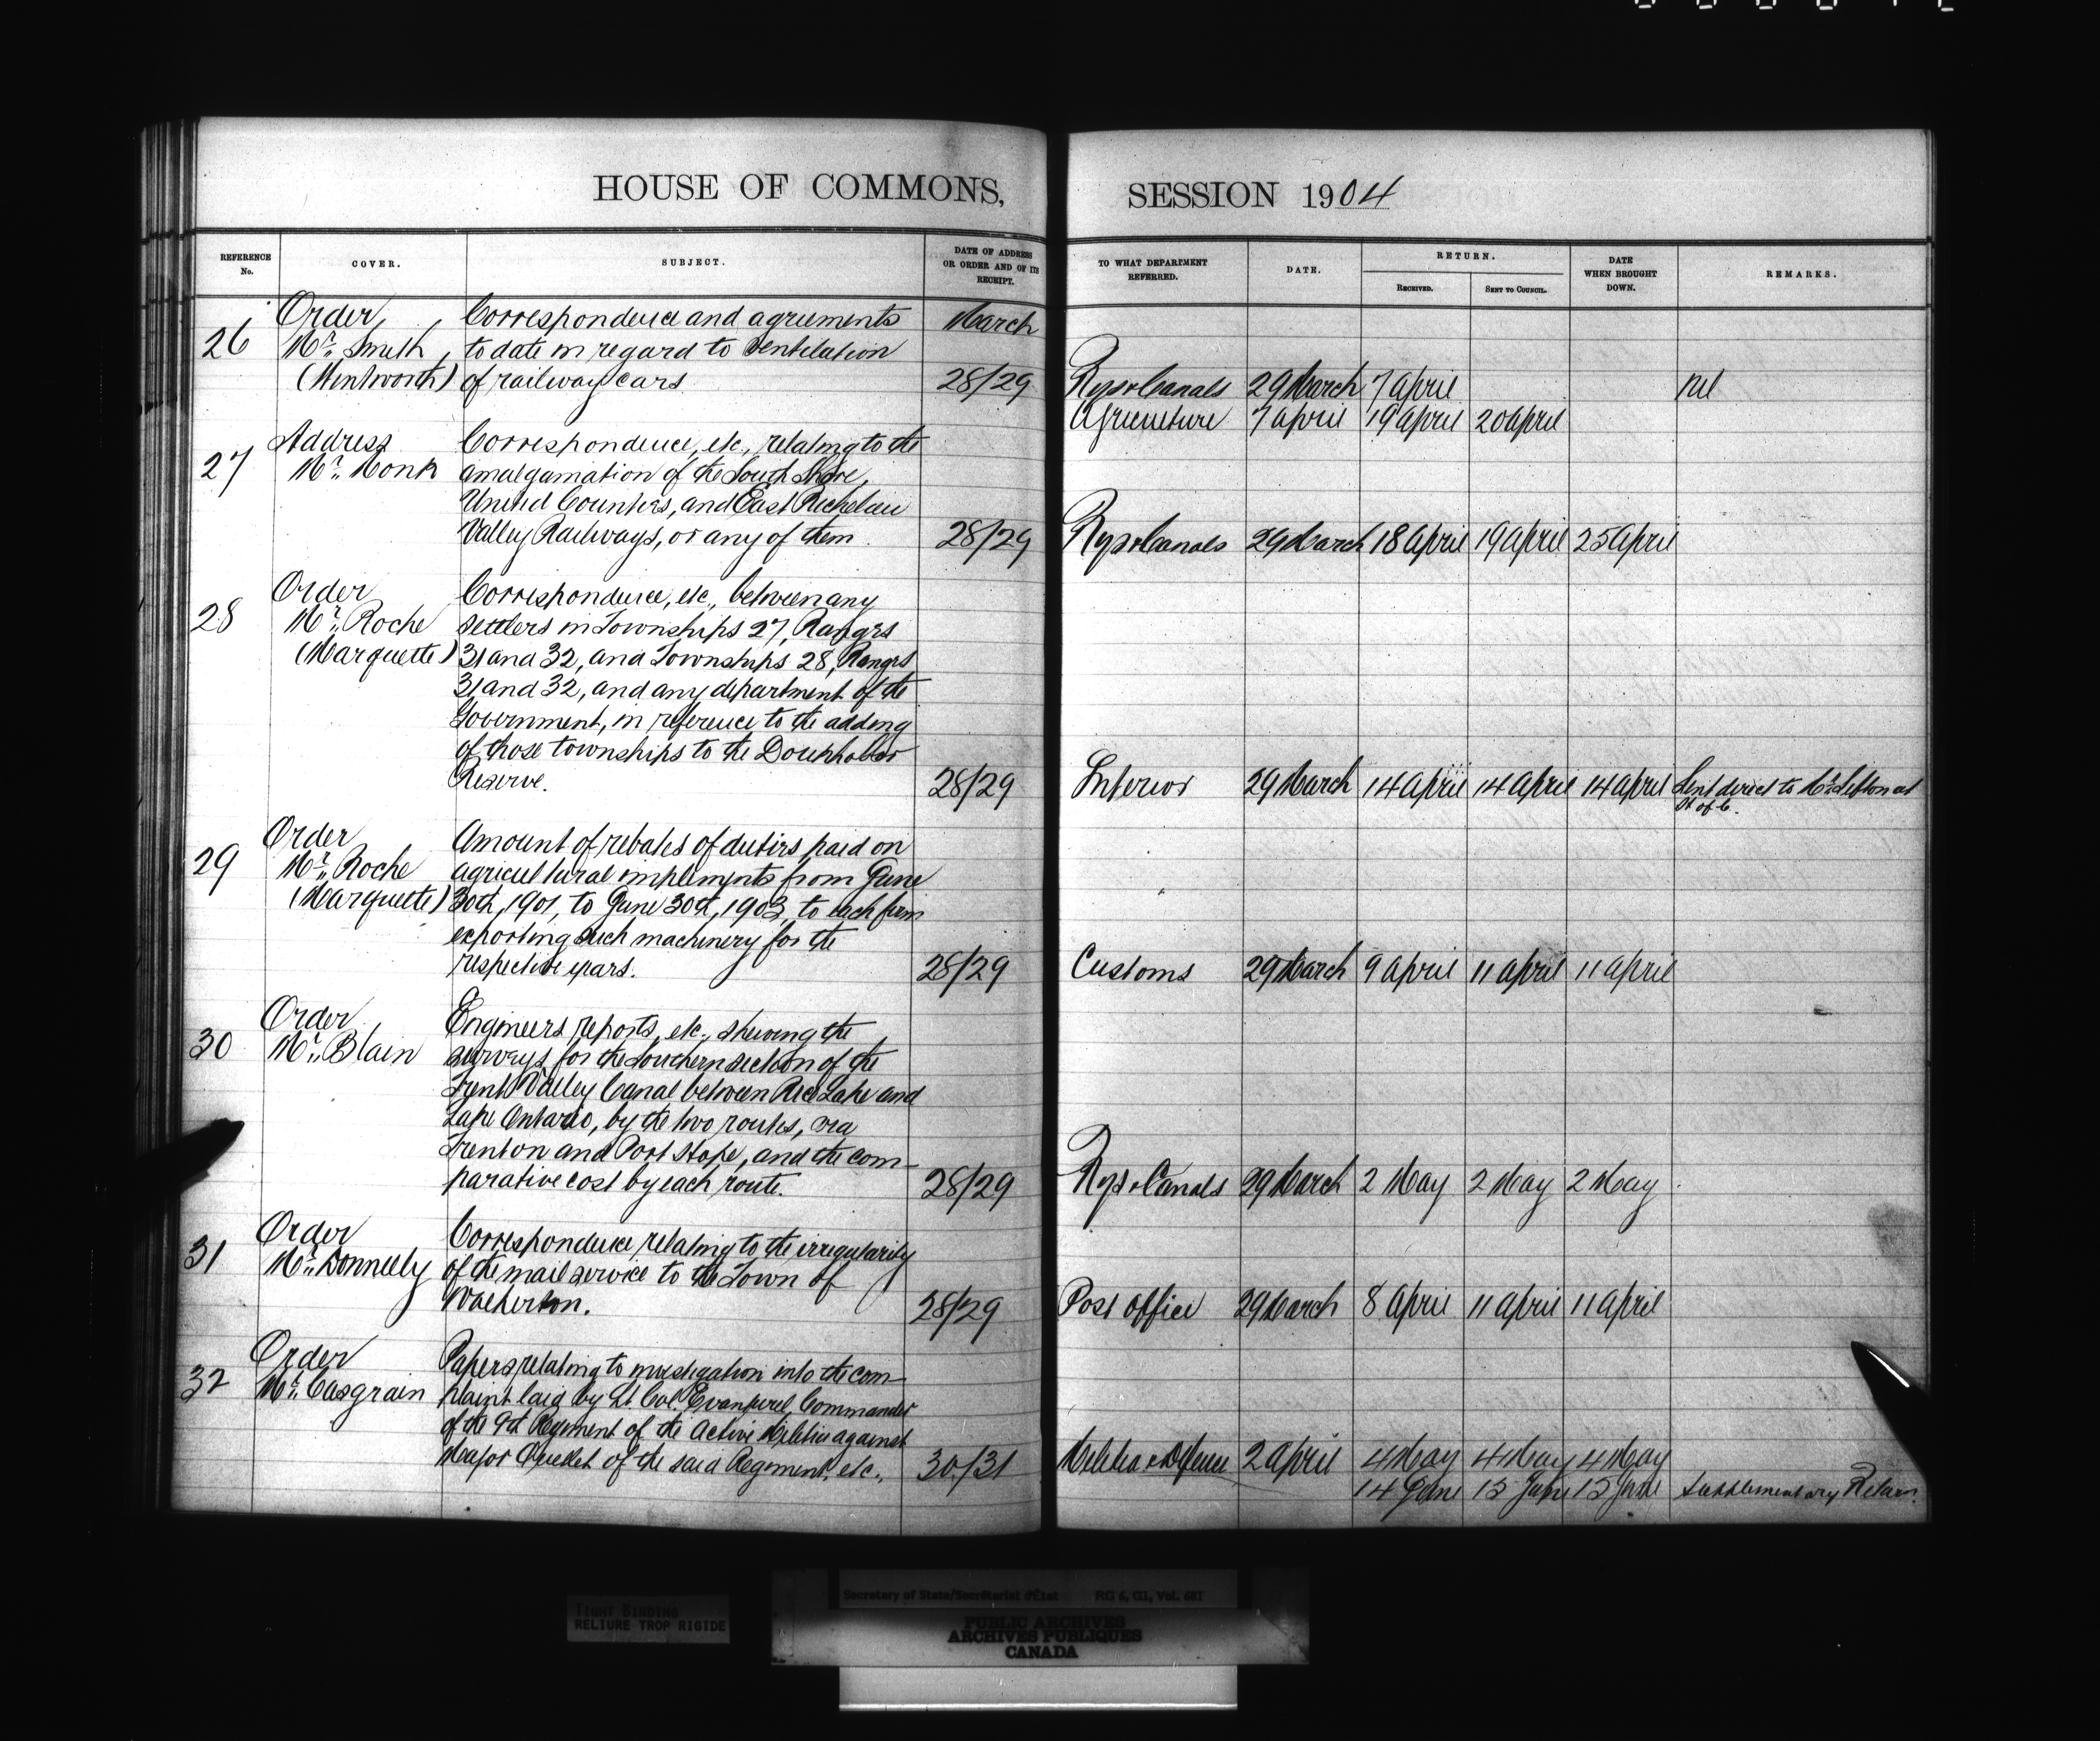 HOUSE OF COMMONS,
REFERENCE No.
COVER.
SUBJECT.
DATE OF ADDRESS OR ORDER AND OF ITS RECEIPT.
26
Order
Mr. Smith
(Wentworth)
Correspondence and agreements
to date in regard to ventilation
of railway cars
March
28/29
27
Address
Mr. Monk
Correspondence, etc., relating to the
amalgamation of the South Shore,
United Counties, and East Richelieu
Valley Railways, or any of them.
28/29
28
Order
Mr. Roche
(Marquette)
Correspondence, etc., between any
settlers in Townships 27, Ranges
31 and 32, and Townships 28, Ranges
31 and 32, and any department of the
Government, in reference to the adding
of those townships to the Doukhobor
Reserve.
28/29
29
Order
Mr. Roche
(Marquette)
Amount of rebates of duties paid on
agricultural implements from June
30th, 1901, to June 30th, 1903, to each firm
exporting such machinery for the
respective years.
28/29
30
Order
Mr. Blain
Engineers reports, etc., shewing the
surveys for the Southern section of the
Trent Valley Canal between Rice Lake and
Lake Ontario, by the two routes, via
Trenton and Port Hope, and the com-
parative cost by each route.
28/29
31
Order
Mr. Donnelly
Correspondence relating to the irregularity
of the mail service to the Town of
Walkerton.
28/29
32
Order
Mr. Casgrain
Papers relating to investigation into the com-
plaint laid by Lt. Col. Evanturel, Commander
of the 9th Regiment of the Active Militia against
Major Ouellet of the said Regiment, etc.
30/31
SESSION 1904
TO WHAT DEPARTMENT REFERRED.
DATE.
RETURN.
RECEIVED.
SENT TO COUNCIL.
DATE WHEN BROUGHT DOWN.
REMARKS.
Rys & Canals 29 March 7 April nil
Agriculture 7 April 19 April 20 April
Rys & Canals 29 March 18 April 19 April 25 April
Interior 29 March 14 April 14 April 14 April Sent direct to Mr. Sifton at
H of C.
Customs 29 March 9 April 11 April 11 April
Rys & Canals 29 March 2 May 2 May 2 May
Post Office 29 March 8 April 11 April 11 April
Militia & Defence 2 April 4 May 4 May 4 May
14 June 15 June 15 June Supplementary Return
Secretary of State/Secrétariat d'État RG 6, G11, Vol. 681
TIGHT BINDING
RELIURE TROP RIGIDE
PUBLIC ARCHIVES
ARCHIVES PUBLIQUES
CANADA